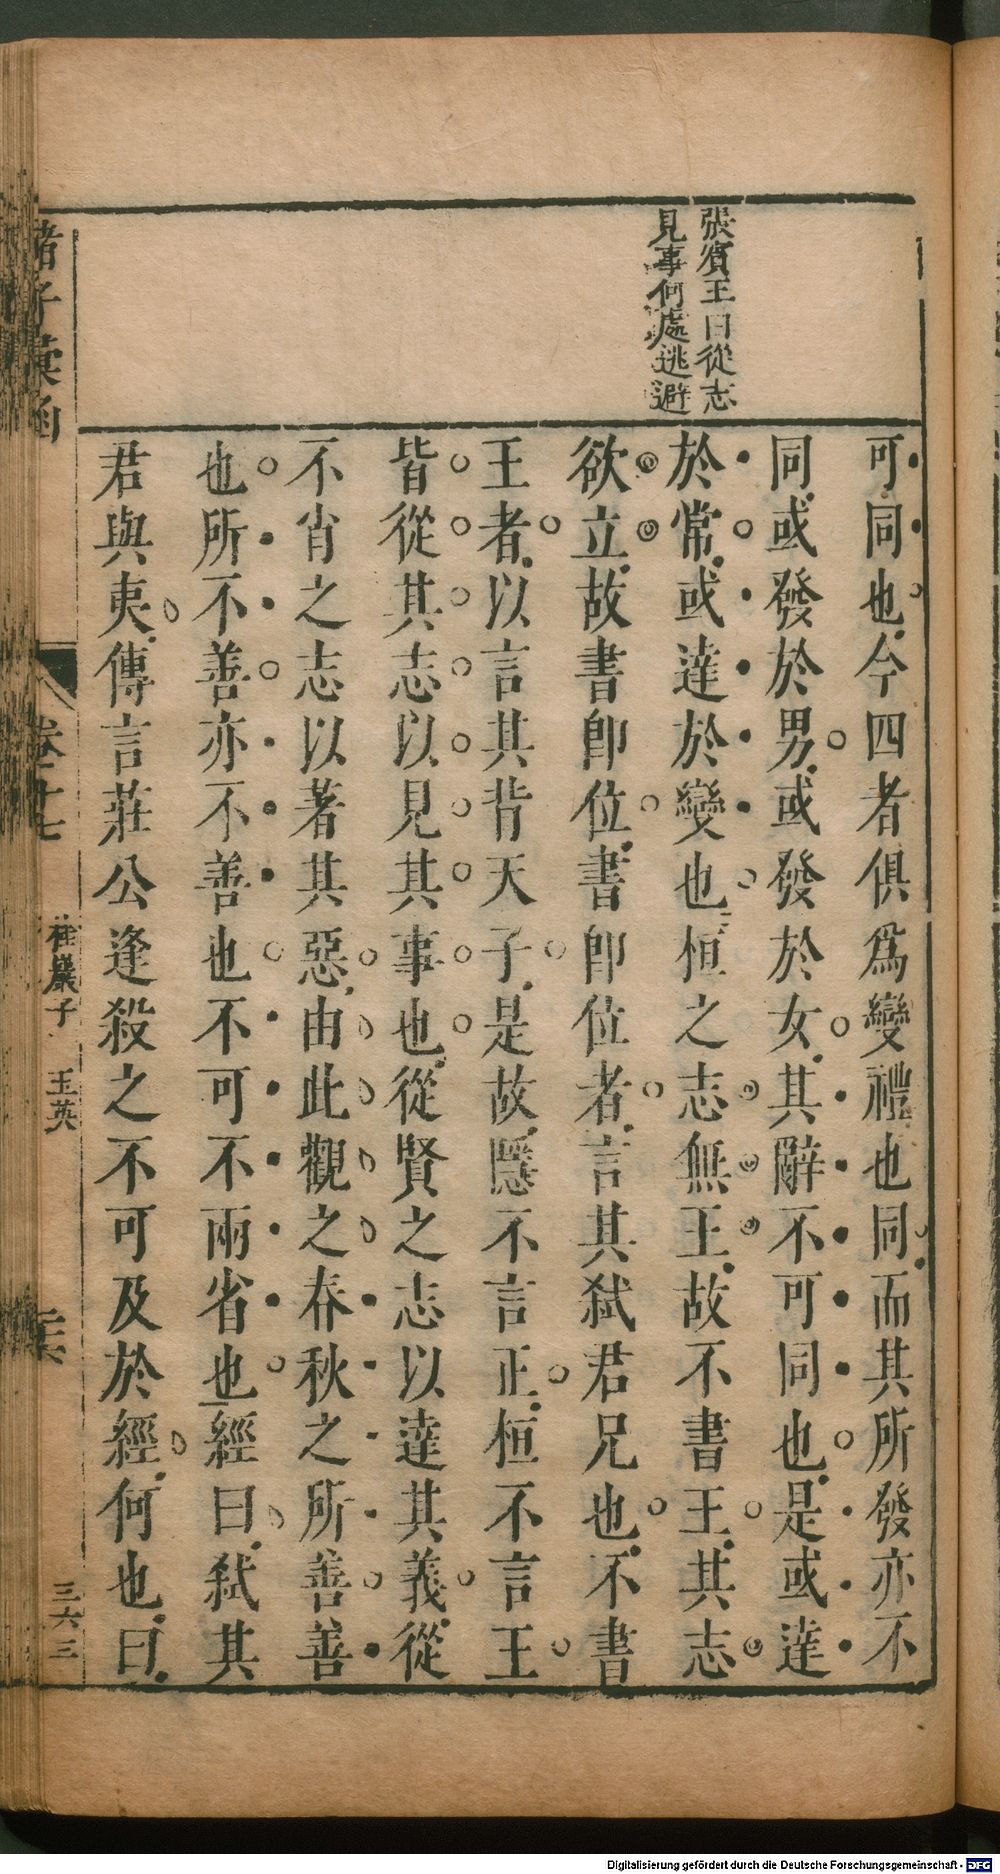 張賓王曰從志
見事何處逃避
可同也今四者俱爲變禮也同而其所發亦不
同或發於男或發於女其辭不可同也是或達
於常或達於變也桓之志無王故不書王其志
欲立故書卽位書卽位者言其弑君兄也不書
王者以言其背天子是故隱不言正桓不言王
皆從其志以見其事也從賢之志以達其義從
不肖之志以著其惡由此觀之春秋之所善善
也所不善亦不善也不可不兩省也經曰弑其
君與夷傳言莊公逢殺之不可及於經何也曰
諸子彙函
卷十七
桂巖子
王英
三六三
Digitalisierung gefördert durch die Deutsche Forschungsgemeinschaft - DFG